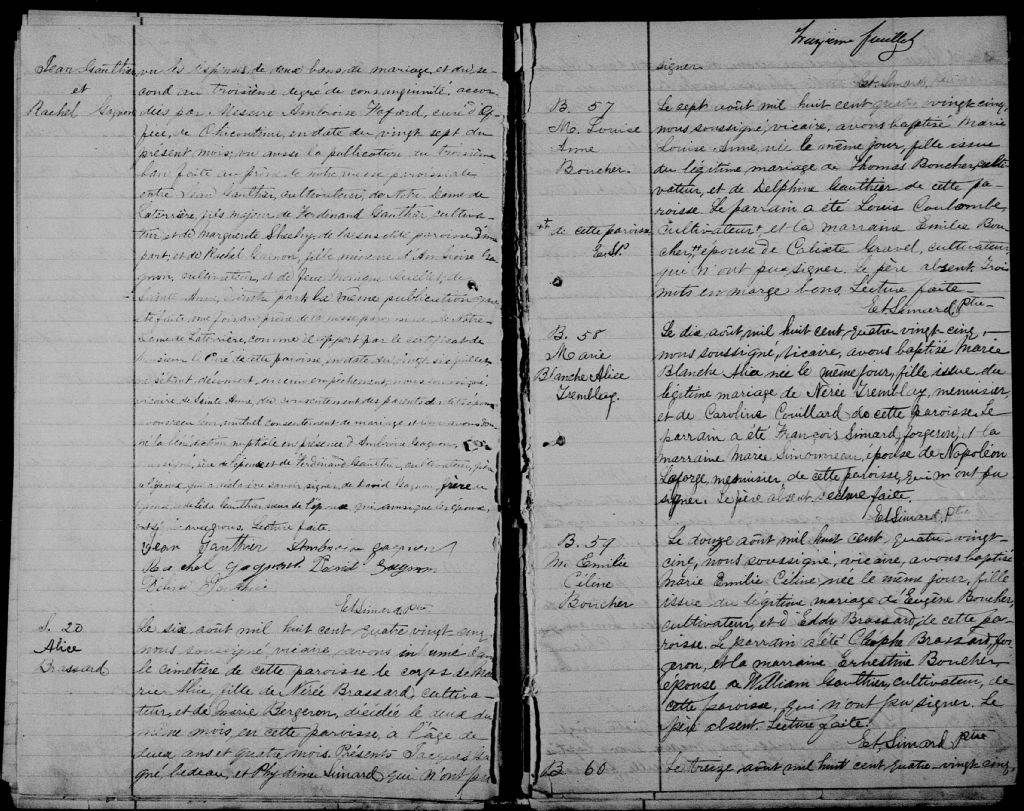 Jean Gauthier
et
Rachel Gagnon
vu les dispenses de deux bans de mariage, et du se-
cond au troisième degré de consanguinité accor-
dées par Messire Ambroise Fafard, curé d'
de Chicoutimi, en date du vingt sept du
présent mois; vu aussi la publication du troisième
ban faite au prône de notre messe paroissiale
entre Jean Gauthier, cultivateur, de Notre Dame de
Laterrière, fils majeur de Ferdinand Gauthier cultiva-
teur et de Marguerite de la susdite paroisse d'une
part; et de Rachel Gagnon, fille mineure d'Ambroise Ga-
gnon, cultivateur, et de feue de
Sainte Anne, d'autre part; la même publication
été faite une fois au prône de la messe paroissiale de Notre
Dame de Laterrière, comme il appert par le certificat de
Monsieur le Curé de cette paroisse, en date du vingt six juillet;
ne s'étant découvert aucun empêchement, nous soussigné,
vicaire de Sainte Anne, du consentement des parents
avons reçu leur mutuel consentement de mariage et leur avons don-
né la bénédiction nuptiale en présence d'Ambroise Gagnon,
soussigné, père de l'épouse et de Ferdinand Gauthier, cultivateur, père
de l'époux, qui a déclaré ne savoir signer, de David Gagnon, frère de
l'épouse, Gauthier soeur de l'époux qui ainsi que les époux,
ont signé avec nous. Lecture faite.
Jean Gauthier Ambroise Gagnon
Rachel Gagnon David Gagnon
Gauthier
Et. Simard, Ptre
S. 20
Alice
Brassard
Le six août mil huit cent quatre vingt cinq
nous soussigné, vicaire, avons inhumé dans
le cimetière de cette paroisse le corps de Ma-
rie Alice, fille de Nérée Brassard, cultiva-
teur, et de Marie Bergeron, décédée le deux du
même mois, en cette paroisse, à l'âge de
deux ans et quatre mois. Présents Jacques Ga-
gné, bedeau, et Phydime Simard qui n'ont pu
Treizième feuillet
signer.
Et. Simard, ptre
B. 57
M. Louise
Anne
Boucher.
Le sept août mil huit cent quatre vingt cinq,
nous soussigné, vicaire, avons baptisé Marie
Louise Anne, née le même jour, fille issue
du légitime mariage de Thomas Boucher, culti-
vateur, et de Delphine Gauthier de cette pa-
roisse. Le parrain a été Louis Coulombe,
++ de cette paroisse
E. S.
cultivateur, et la marraine Emilie Bou-
cher, ++ épouse de Calixte Gravel, cultivateur
qui n'ont pu signer. Le père absent. Trois
mots en marge bons. Lecture faite
Et. Simard, Ptre
B. 58
Marie
Blanche Alice
Tremblay.
Le dix août, mil huit cent quatre vingt cinq,
nous soussigné, vicaire, avons baptisé Marie
Blanche Alice née le même jour, fille issue du
légitime mariage de Nérée Tremblay, menuisier,
et de Caroline Couillard de cette paroisse. Le
parrain a été François Simard, forgeron, et la
marraine Marie Simonneau, épouse de Napoléon
Laforge, menuisier, de cette paroisse, qui n'ont pu
signer. Le père absent. Lecture faite.
Et. Simard, Ptre
B. 59
M. Emilie
Céline
Boucher
Le douze août mil huit cent quatre-vingt-
cinq, nous soussigné, vicaire, avons baptisé
Marie Emilie Céline née le même jour, fille
issue du légitime mariage d'Eugène Boucher,
cultivateur, et d'Eddy Brassard, de cette pa-
roisse. Le parrain a été Cléophe Brassard, for-
geron, et la marraine Ernestine Boucher
épouse de William Gauthier, cultivateur, de
cette paroisse, qui n'ont pu signer. Le
père absent. Lecture faite.
Et. Simard, Ptre
B. 60
Le treize août mil huit cent quatre-vingt-cinq,